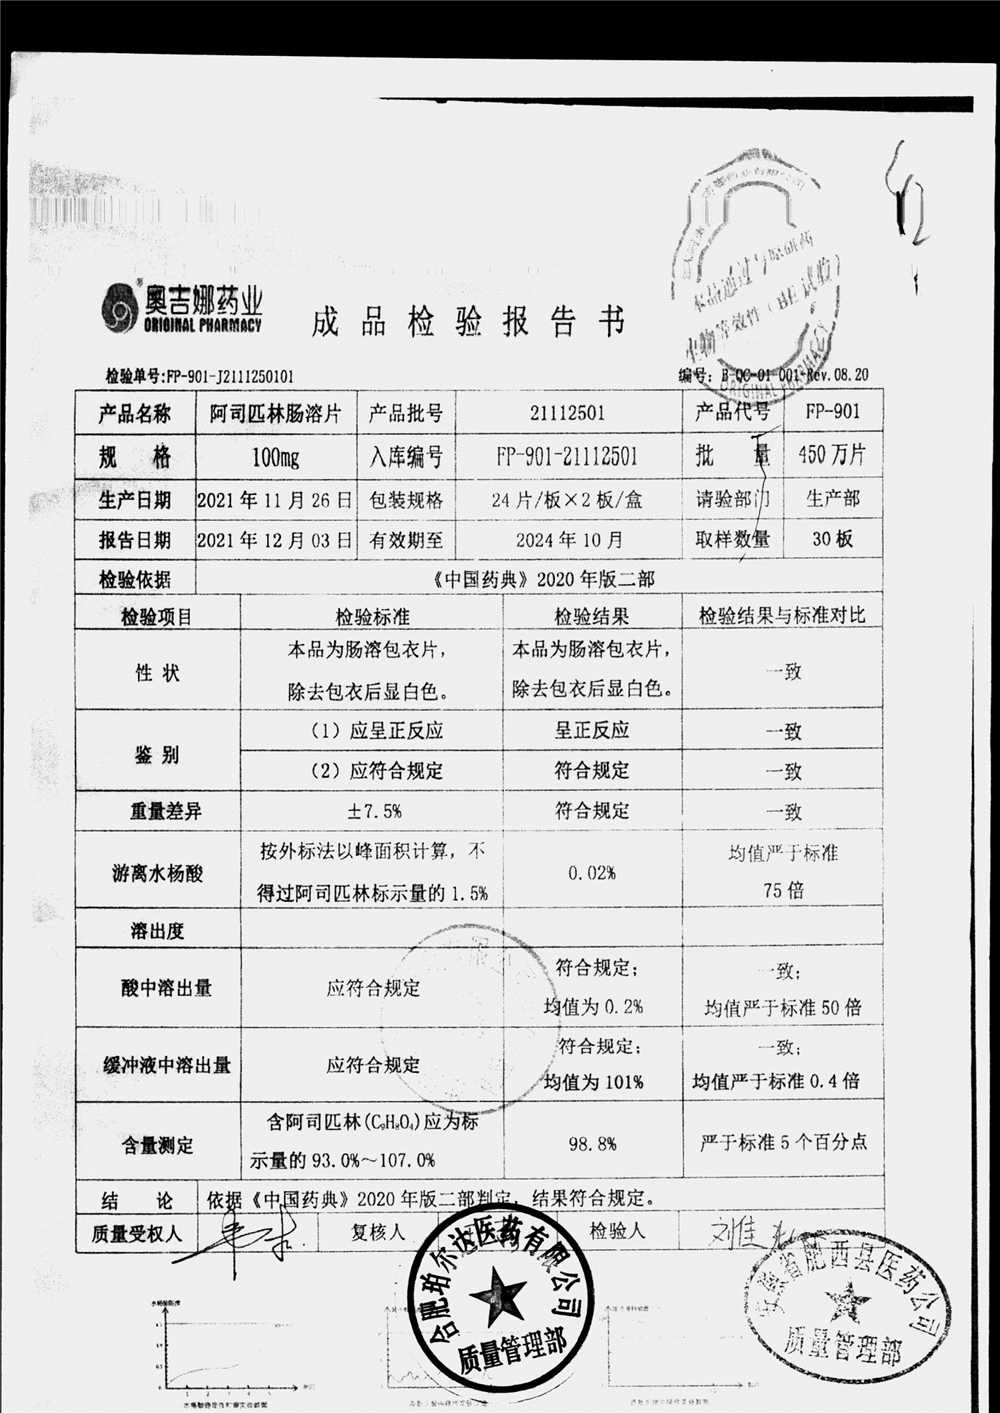 奥吉娜药业
ORIGINAL PHARMACY
成品检验报告书
本品通过与原研药
生物等效性（BE试验）
ORIGINAL PHARMACY
检验单号:FP-901-J2111250101 编号: B-QC-01-001-Rev.08.20
产品名称 阿司匹林肠溶片 产品批号 21112501 产品代号 FP-901
规 格 100mg 入库编号 FP-901-21112501 批 量 450万片
生产日期 2021年11月26日 包装规格 24片/板×2板/盒 请验部门 生产部
报告日期 2021年12月03日 有效期至 2024年10月 取样数量 30板
检验依据 《中国药典》2020年版二部
检验项目 检验标准 检验结果 检验结果与标准对比
性 状 本品为肠溶包衣片， 本品为肠溶包衣片， 一致
除去包衣后显白色。 除去包衣后显白色。
鉴 别 （1）应呈正反应 呈正反应 一致
（2）应符合规定 符合规定 一致
重量差异 ±7.5% 符合规定 一致
游离水杨酸 按外标法以峰面积计算，不 0.02% 均值严于标准
得过阿司匹林标示量的1.5% 75倍
溶出度
酸中溶出量 应符合规定 符合规定； 一致；
均值为0.2% 均值严于标准50倍
缓冲液中溶出量 应符合规定 符合规定； 一致；
均值为101% 均值严于标准0.4倍
含量测定 含阿司匹林(C₉H₈O₄)应为标 98.8% 严于标准5个百分点
示量的93.0%～107.0%
结 论 依据《中国药典》2020年版二部判定，结果符合规定。
质量受权人 复核人 检验人 刘佳
合肥珀尔达医药有限公司
质量管理部
安徽省肥西县医药公司
质量管理部